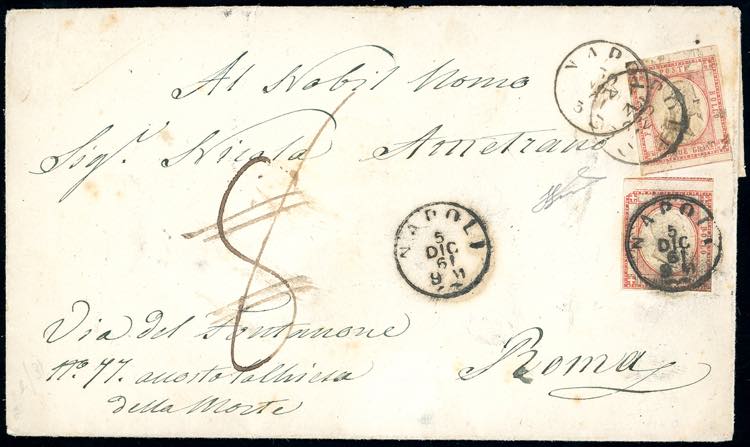 Al Nobil Uomo
Sigr. Nicola Ametrano
8
Via del Fontanone
No. 77. accosto la Chiesa
della Morte
Roma
NAPOLI
POSTE
NAPOLI
5
DIC
61
9 M
NAPOLI
5
DIC
61
9 M